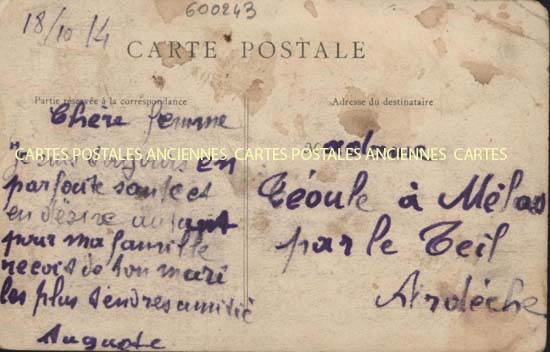 600243
18/10 14
CARTE POSTALE
Partie réservée à la correspondance
Adresse du destinataire
Chère femme
Je suis toujours en
parfaite sante et
en désire autant
pour ma famille
recoit de ton mari
les plus tendres amitié
Auguste
CARTES POSTALES ANCIENNES, CARTES POSTALES ANCIENNES CARTES
Téoule à Mélas
par le Teil
Ardèche